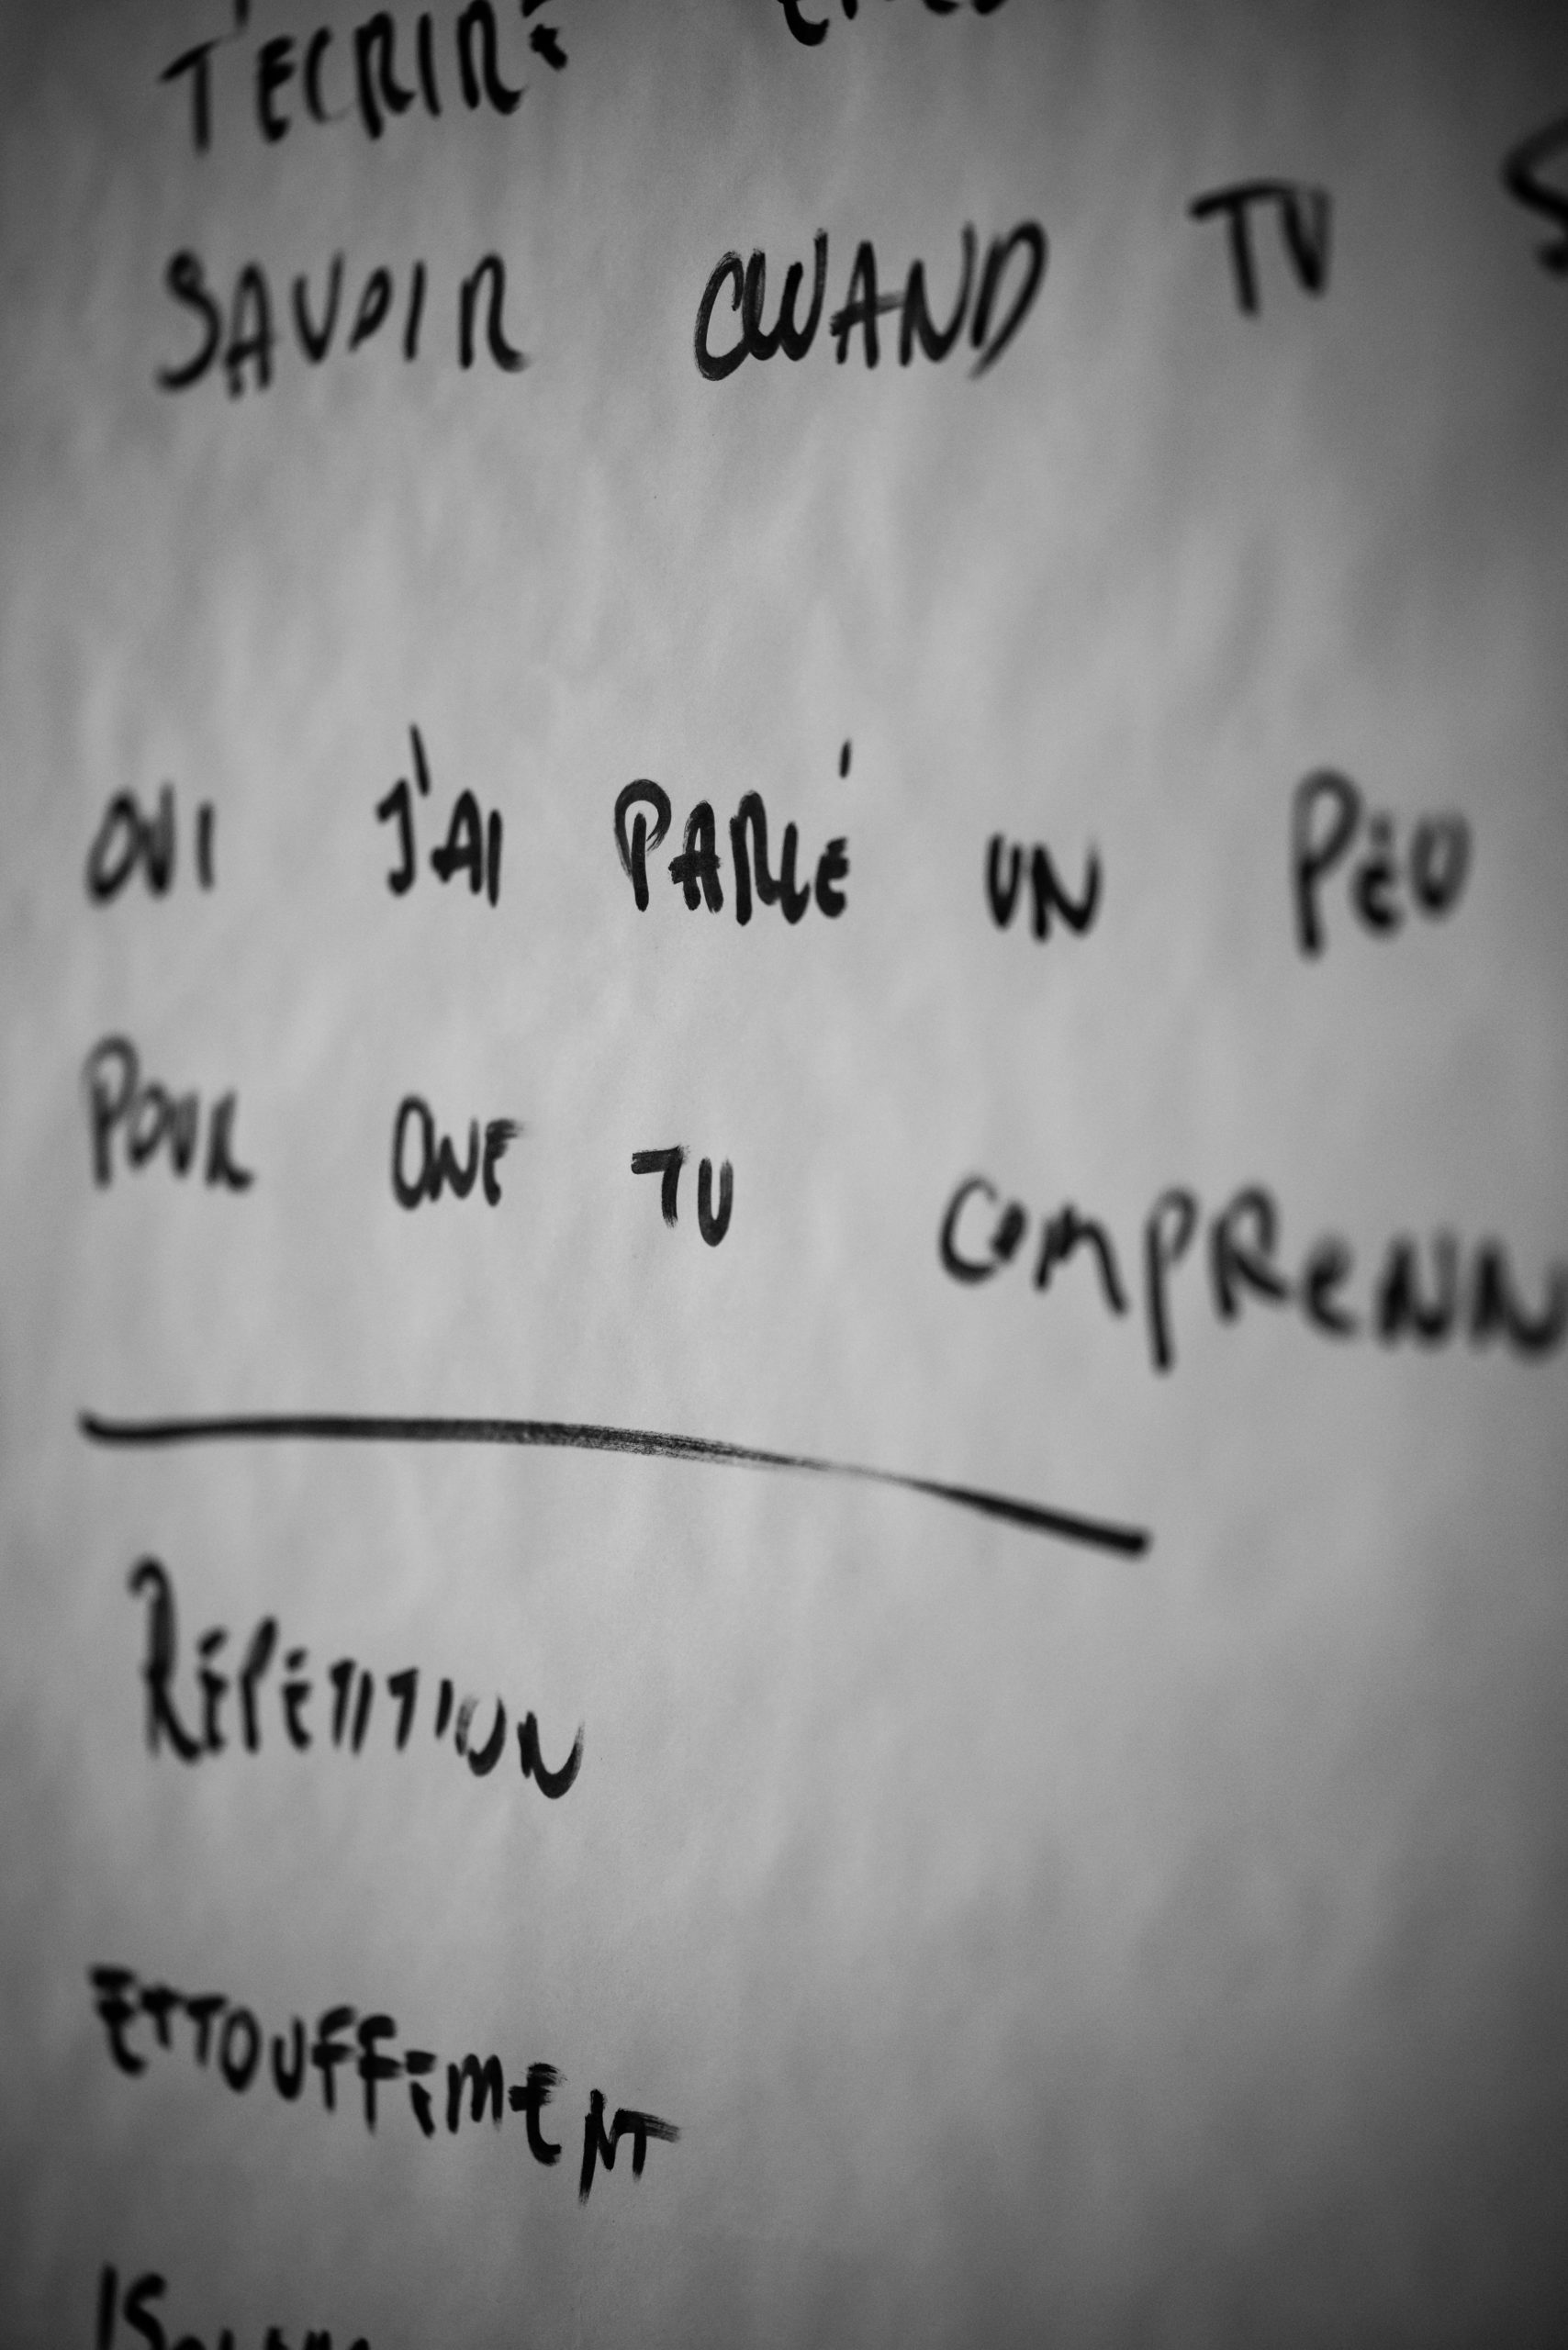 T'ÉCRIRE
SAVOIR QUAND TU
OUI J'AI PARLÉ UN PEU
POUR QUE TU COMPRENN
RÉPÉTITION
ETTOUFFEMENT